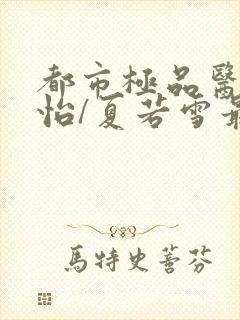 都市極品醫
怡/夏若雪最
馬特史蓍芬